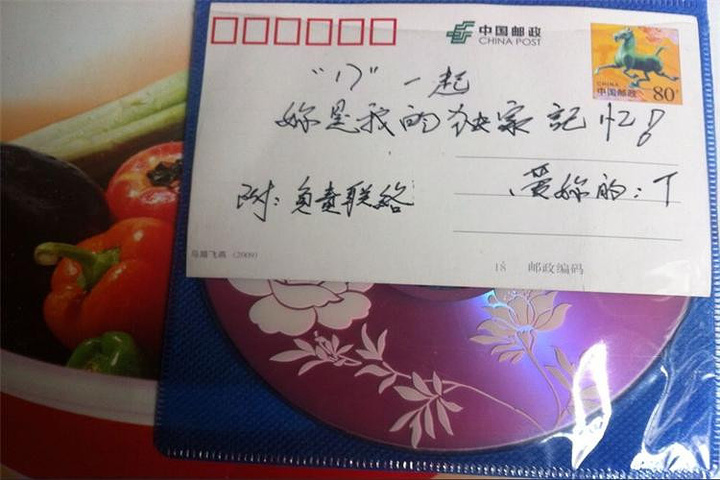 中国邮政
CHINA POST
CHINA
中国邮政 80分
“17” 一起
妳是我的独家記忆!
附：负责联络
爱妳的：T
马踏飞燕 (2009)
18 邮政编码